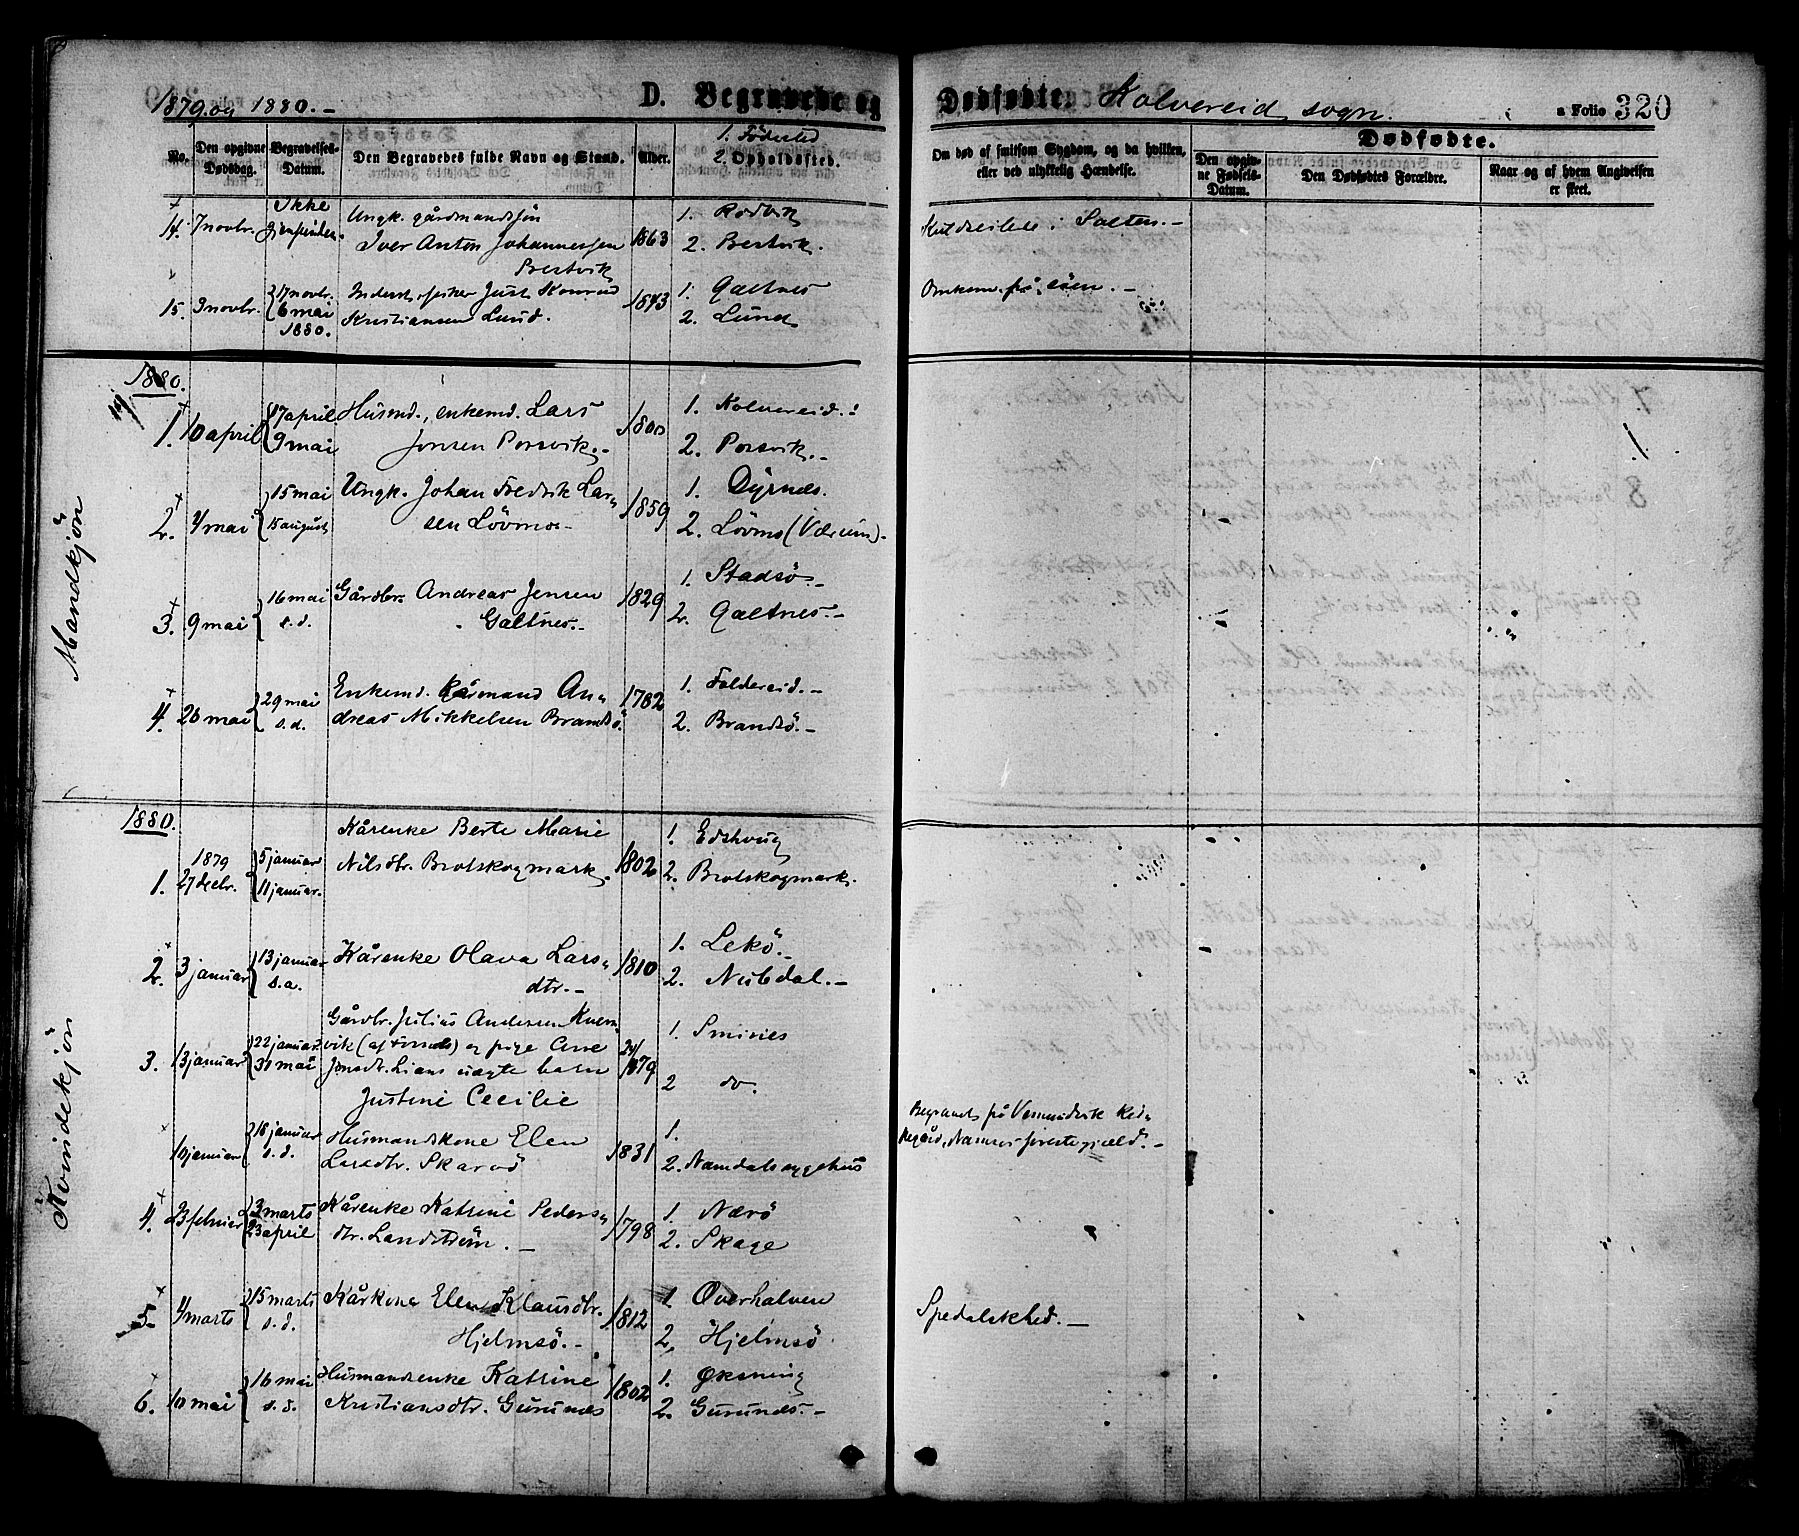 1879 og 1880. –
D. Begravede og Dødfødte. Kolvereid sogn. a Folio 320
No.
Den opgivne Dødsdag.
Begravelses-Datum.
Den Begravedes fulde Navn og Stand.
Alder.
1. Födested
2. Opholdssted.
Om død af smitsom Sygdom, og da hvilken, eller ved ulykkelig Hændelse.
Dødfødte.
Den opgivne Fødsels-Datum.
Den Dødfødtes Forældre.
Naar og af hvem Angivelsen er skeet.
14. 7 novbr. Ikke gjenfunden. Ungk. gårdmandssön
Iver Anton Johannessen
Brestvik 1863 1. Rodvik
2. Brestvik.
Kuldseilede i Salten. –
15. 3 novbr. 17 novbr. 6 mai 1880. Inderst, fisker Just Konrad
Kristiansen Lund. 1843 1. Galtnes
2. Lund
Omkom på söen. –
1880.
Mandkjön
1. 10 april 17 april 9 mai Husmd., enkemd. Lars
Jensen Porsvik. – 1800 1. Kolvereid.
2. Porsvik. –
2. 4 mai 15 mai 15 august Ungk. Johan Fredrik Lar-
sen Lövmo – 1859 1. Dyrnes.
2. Lövmo (Værum). –
3. 9 mai 16 mai s.d. Gårdbr. Andreas Jensen
Galtnes. – 1829 1. Stadsö. –
2. Galtnes. –
4. 26 mai 29 mai s.d. Enkemd. Kårmand An-
dreas Mikkelsen Brandsö. 1782 1. Foldereid. –
2. Brandsö. –
1880.
Kvindekjön
1. 1879 27 decbr. 5 januar 11 januar. Kårenke Berte Marie
Nilsdtr. Brotskogmark. 1802 1. Edshoug
2. Brotskogmark.
2. 3 januar 13 januar s.a. Kårenke Olava Lars-
dtr. – 1810 1. Lekö. –
2. Nubdal. –
3. 13 januar 22 januar 31 mai Gårdbr. Julius Andersen Kvern-
vik og pige Ane
Jonsdtr. Lians uægte barn
Justine Cecilie 24/ 1879 1. Smines
2 do.
10 januar 18 januar s.d. Husmandskone Elen
Larsdtr. Skarvö 1831 1.
2. Namdals sygehus
Begravet på Vemundvik Kir-
kegård, Namsos præstegjæld. –
4. 23 februar 3 marts 23 april Kårenke Katrine Peders-
dtr. Landström. – 1798 1. Nærö
2. Skage
5 4 marts 15 marts s.d. Kårkone Elen Klausdtr.
Hjelmsö. – 1812 1. Overhalven
2. Hjelmsö
Spedalskhed. –
6. 10 mai 16 mai s.d. Husmandsenke Katrine
Kristiansdtr. Gurunæs 1802 1. Øksning
2. Gurunæs. –
1.